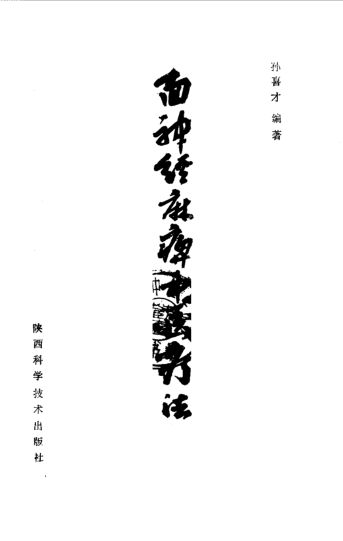 孙喜才 编著
面神经麻痹中医疗法
陕西科学技术出版社